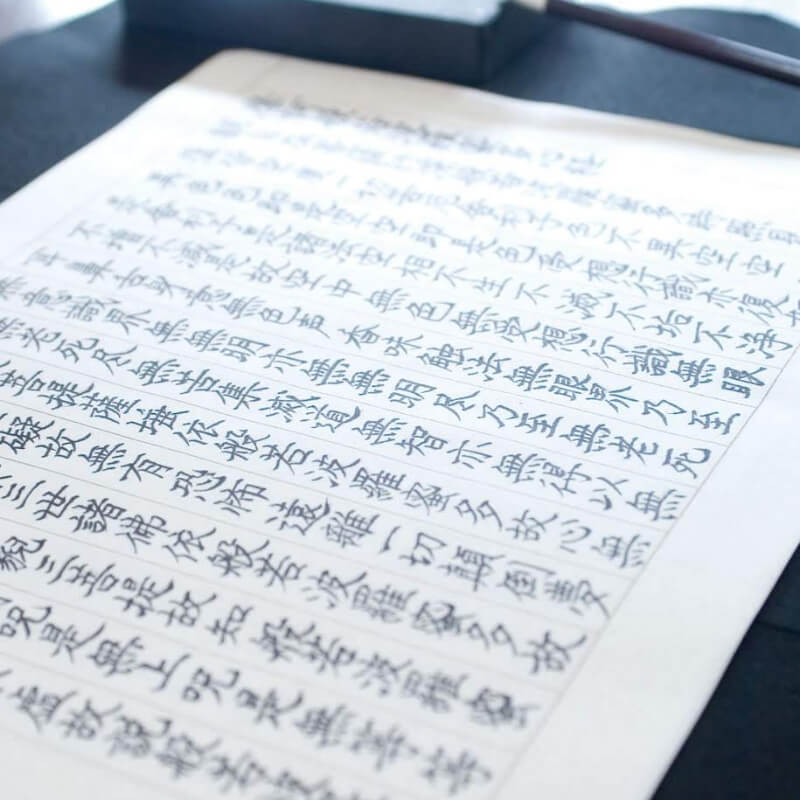 摩訶般若波羅蜜多心経
観自在菩薩行深般若波羅蜜多時照見
五蘊皆空度一切苦厄舎利子色不異空空
不異色色即是空空即是色受想行識亦復如
是舎利子是諸法空相不生不滅不垢不浄
不増不減是故空中無色無受想行識無眼
耳鼻舌身意無色声香味触法無眼界乃至
無意識界無無明亦無無明尽乃至無老死
無老死尽無苦集滅道無智亦無得以無
菩提薩埵依般若波羅蜜多故心無
礙故無有恐怖遠離一切顛倒夢
三世諸佛依般若波羅蜜多故
藐三菩提故知般若波羅蜜
呪是無上呪是無等等
虚故説般若波